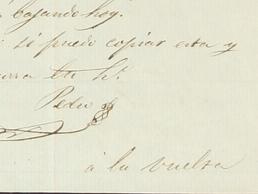 bajando hoy.
si puedo copiar esta y
tu hº.
Pedro
á la vuelta